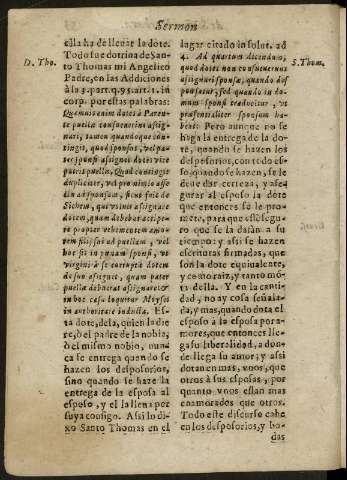 Sermon
D. Tho.
ella ha de llenar la dote.
Todo fue dotrina de San-
to Thomas mi Angelico
Padre, en las Addiciones
à la 3. part. q. 95. art. 1. in
corp. por estas palabras:
Quamuis enim dotes à Paren-
te puellæ consueuerint assig-
nari, tamen quandoque con-
tingit, quod sponsus, vel pa-
ter sponsi assignet dotes vice
patris puellæ, Quod contingit
dupliciter, vel pro nimio affe-
ctu ad sponsam, sicut fuit de
Sichem, qui
dotem, quam debebat acci-
re propter vehementem amo-
rem filij sui ad puellam, vel
hoc fit in pœnam sponsi, vt
virgini à se corruptæ dotem
de suo assignet, quam pater
puellæ debuerat assignare:
in hoc casu loquitur Moyses
in authoritate inducta. Es-
ta dote, dela, quien la die-
re, ò el padre de la nobia,
ò el mismo nobio, nun-
ca se entrega quando se
hazen los desposorios,
sino quando se haze la
entrega de la esposa al
esposo, y el la llena por
suya consigo. Assi lo di-
xo Santo Thomas en el
lugar citado in solut. ad
4. Ad quartum dicendum,
quod dotes non consueuerunt
assignari sponsæ, quando des-
ponsatur, sed quando in do-
mum sponsi traducitur, vt
præsentialiter sponsum ha-
beat: Pero aunque no se
haga la entrega de la do-
te, quando se hazen los
desposorios, con todo es-
so, quando se hazen, se le
deue dar certeza, y asse-
gurar al esposo la dote
que entonces se le pro-
mete, para que estè segu-
ro que se la daràn a su
tiempo: y assi se hazen
escrituras firmadas, que
son la dote equiualente,
y como raiz, y tanto mõ-
ta della. Y en la canti-
dad, no ay cosa señala-
da, y mas, quando dota el
esposo à la esposa por a-
mores, que entonces lle-
ga su liberalidad, a don-
de llega su amor; y assi
dotan en mas, vnos, que
otros à sus esposas, por
quanto vnos estan mas
enamorados que otros.
Todo este discurso cabe
en los desposorios, y bo-
das
S. Thom.